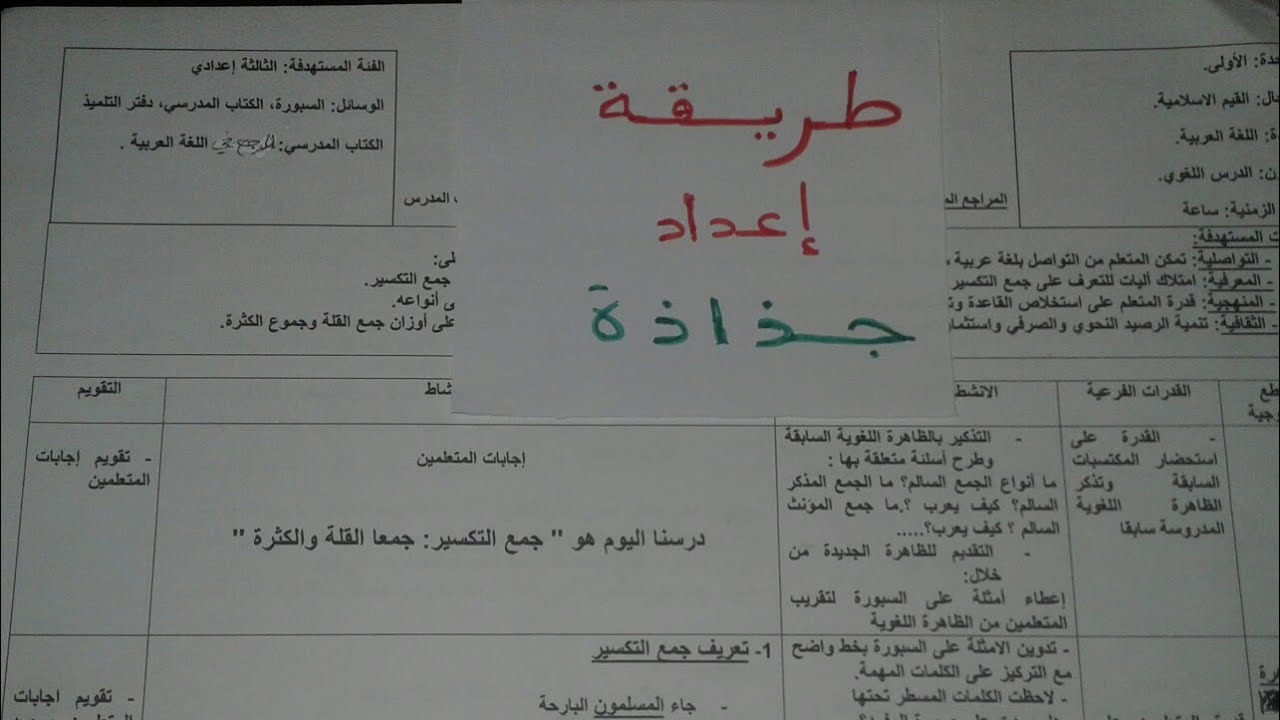 طريقة
إعداد
جذاذة
حدة: الأولى.
جال: القيم الاسلامية.
دة: اللغة العربية.
ون: الدرس اللغوي.
الزمنية: ساعة
المراجع الم
ب المدرس
الفئة المستهدفة: الثالثة إعدادي
الوسائل: السبورة، الكتاب المدرسي، دفتر التلميذ
الكتاب المدرسي: المرجع في اللغة العربية .
ت المستهدفة:
- التواصلية: تمكن المتعلم من التواصل بلغة عربية ،
- المعرفية: امتلاك آليات للتعرف على جمع التكسير
- المنهجية: قدرة المتعلم على استخلاص القاعدة وت
- الثقافية: تنمية الرصيد النحوي والصرفي واستثمار
لى:
جمع التكسير.
ى أنواعه.
على أوزان جمع القلة وجموع الكثرة.
طع
وجية
القدرات الفرعية
الانشط
شاط
التقويم
- القدرة على
استحضار المكتسبات
السابقة وتذكر
الظاهرة اللغوية
المدروسة سابقا
- التذكير بالظاهرة اللغوية السابقة
وطرح أسئلة متعلقة بها :
ما أنواع الجمع السالم؟ ما الجمع المذكر
السالم؟ كيف يعرب ؟.ما جمع المؤنث
السالم ؟ كيف يعرب؟.....
- التقديم للظاهرة الجديدة من
خلال:
إعطاء أمثلة على السبورة لتقريب
المتعلمين من الظاهرة اللغوية
إجابات المتعلمين
درسنا اليوم هو " جمع التكسير: جمعا القلة والكثرة "
- تقويم إجابات
المتعلمين
- تدوين الامثلة على السبورة بخط واضح
مع التركيز على الكلمات المهمة.
- لاحظت الكلمات المسطر تحتها
1- تعريف جمع التكسير
- جاء المسلمون البارحة
- تقويم اجابات